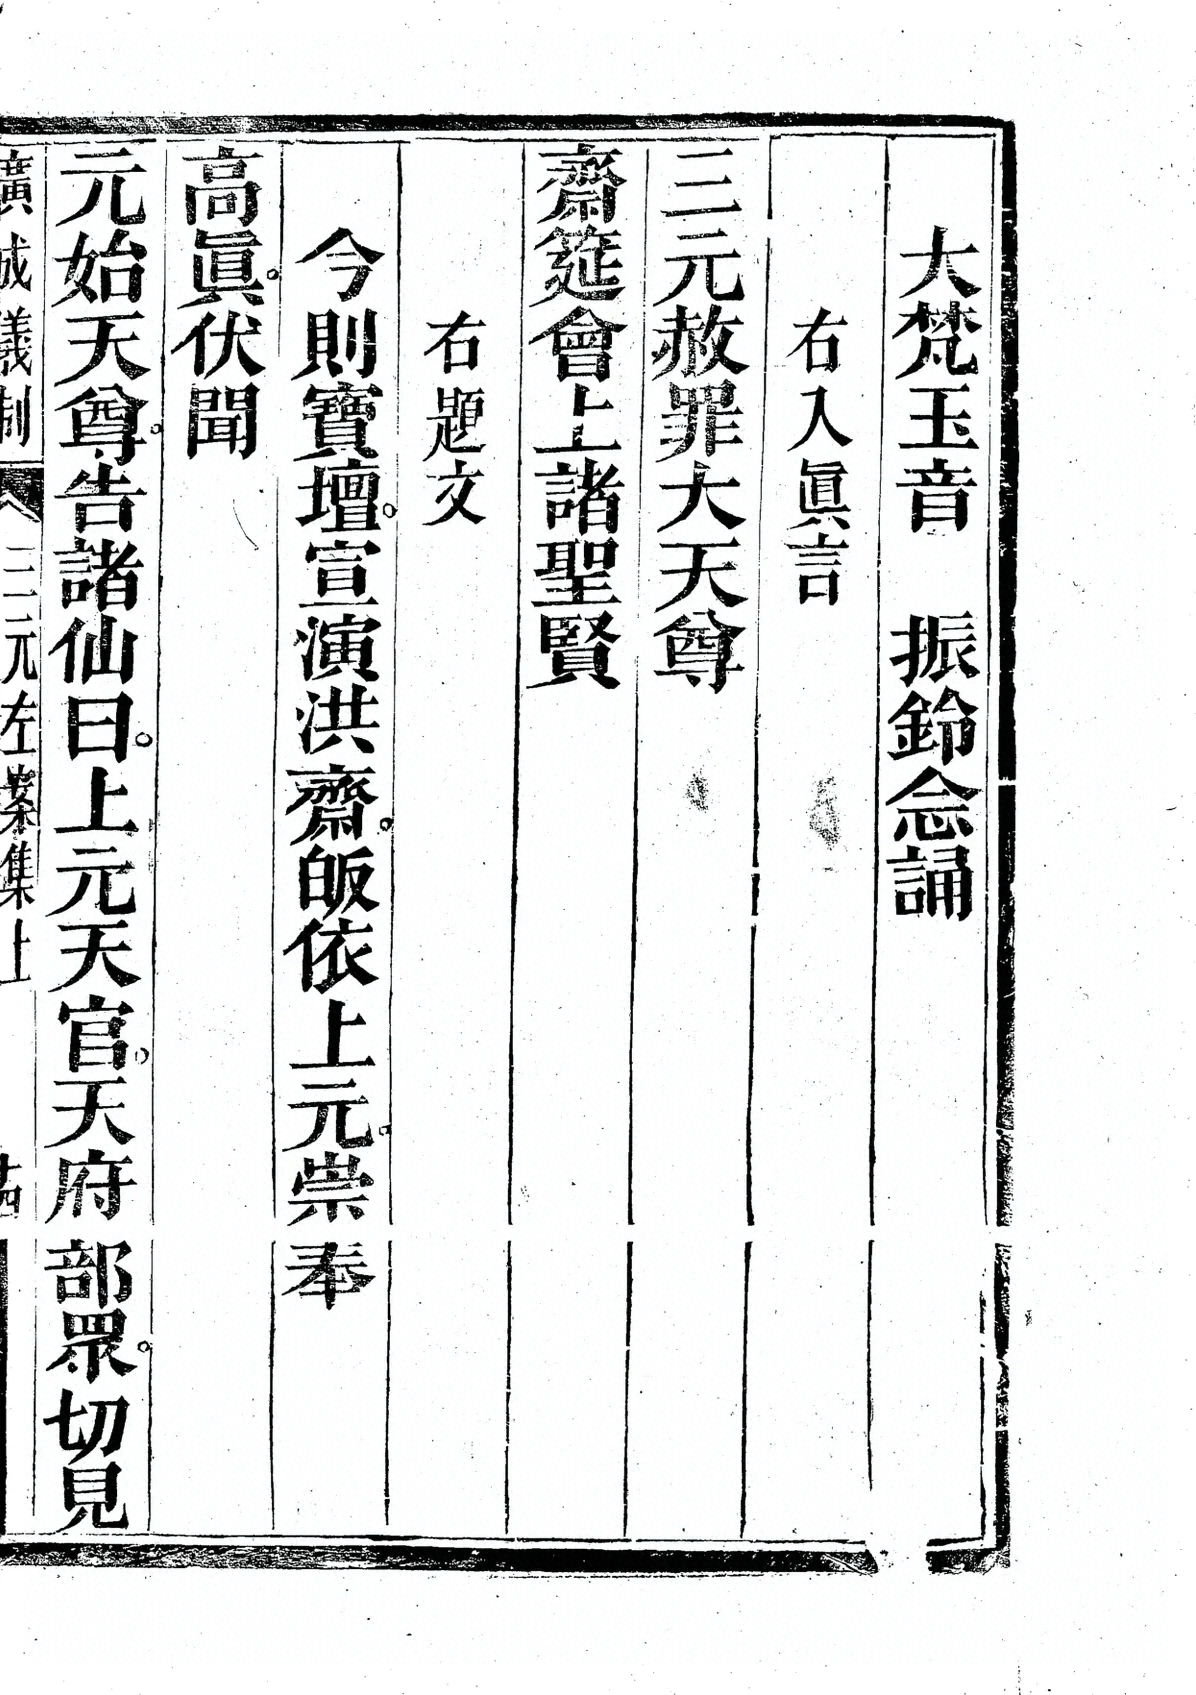 大梵玉音　振鈴念誦
右入眞言
三元赦罪大天尊
齋筵會上諸聖賢
右題文
今則寶壇。宣演洪齋。皈依上元。崇奉
高眞。伏聞
元始天尊。告諸仙曰。上元天官。天府部眾。切見
廣成儀制　三元左案集上　十四